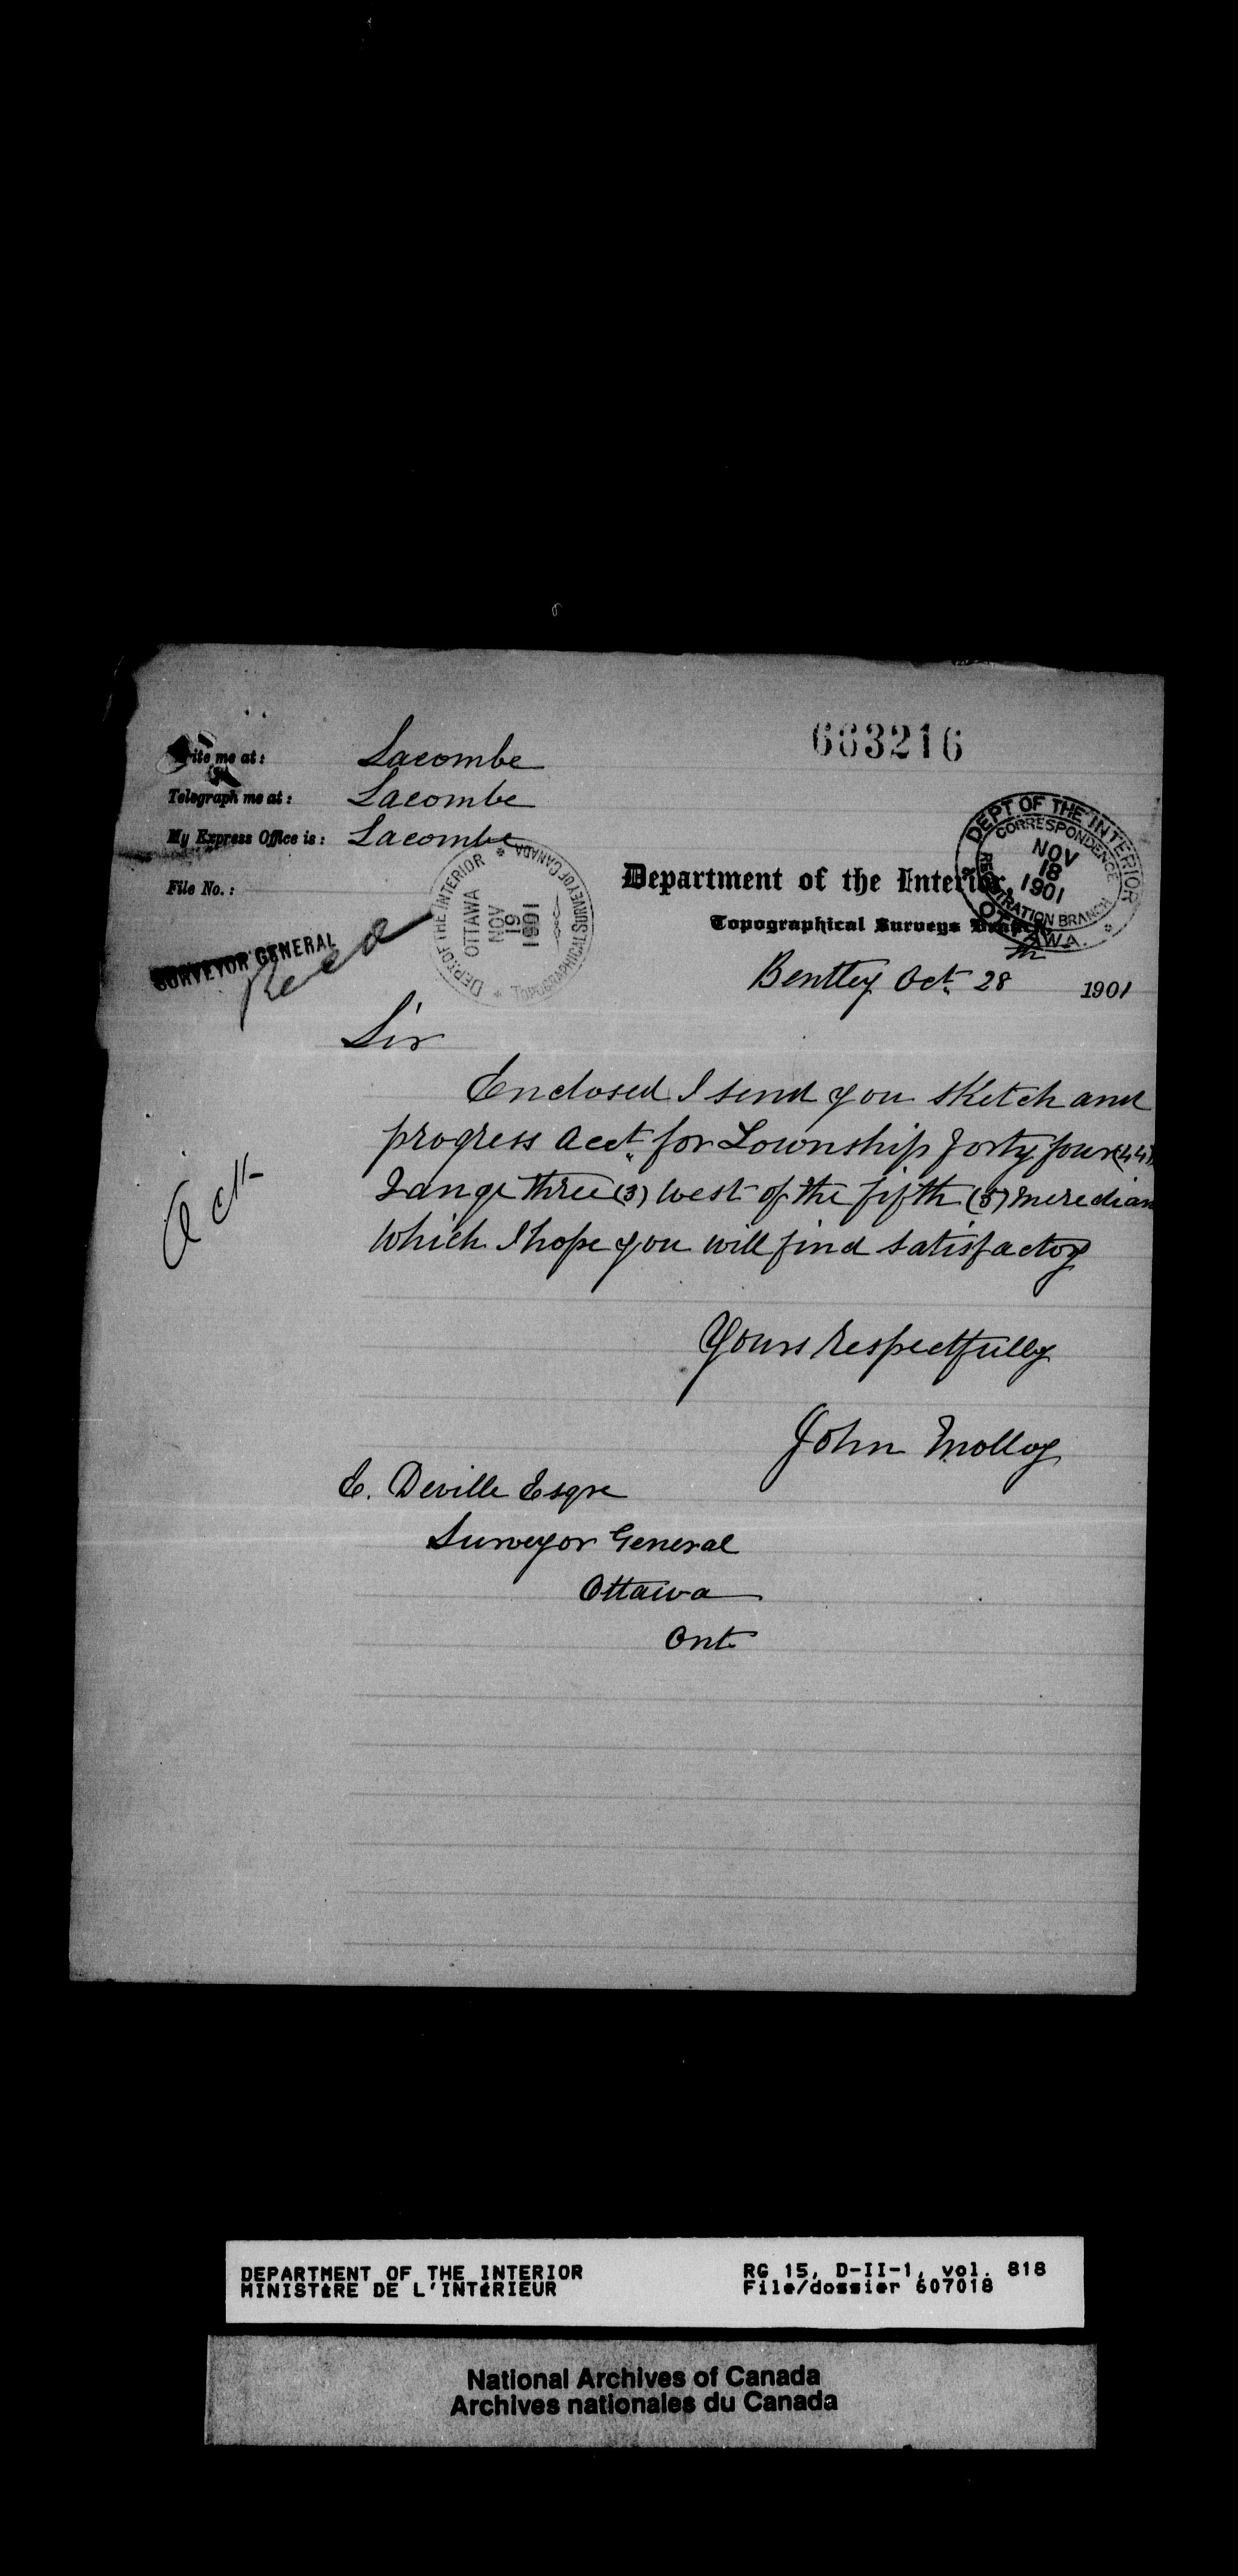 663216
Write me at: Lacombe
Telegraph me at: Lacombe
My Express Office is: Lacombe
File No.:
DEPT OF THE INTERIOR
CORRESPONDENCE
NOV
18
1901
REGISTRATION BRANCH
OTTAWA.
DEPT. OF THE INTERIOR
OTTAWA
NOV
19
1901
TOPOGRAPHICAL SURVEY OF CANADA
Department of the Interior,
Topographical Surveys Branch,
SURVEYOR GENERAL
Recd
Bentley Oct. 28th 1901
Sir
Enclosed I send you sketch and
progress acct. for Township forty four (44),
Range three (3) west of the fifth (5) meredian
which I hope you will find satisfactoy
Ack
Yours respectfully
John Molloy
E. Deville Esqre
Surveyor General
Ottawa
Ont
DEPARTMENT OF THE INTERIOR
MINISTÈRE DE L'INTÉRIEUR
RG 15, D-II-1, vol. 818
File/dossier 607018
National Archives of Canada
Archives nationales du Canada